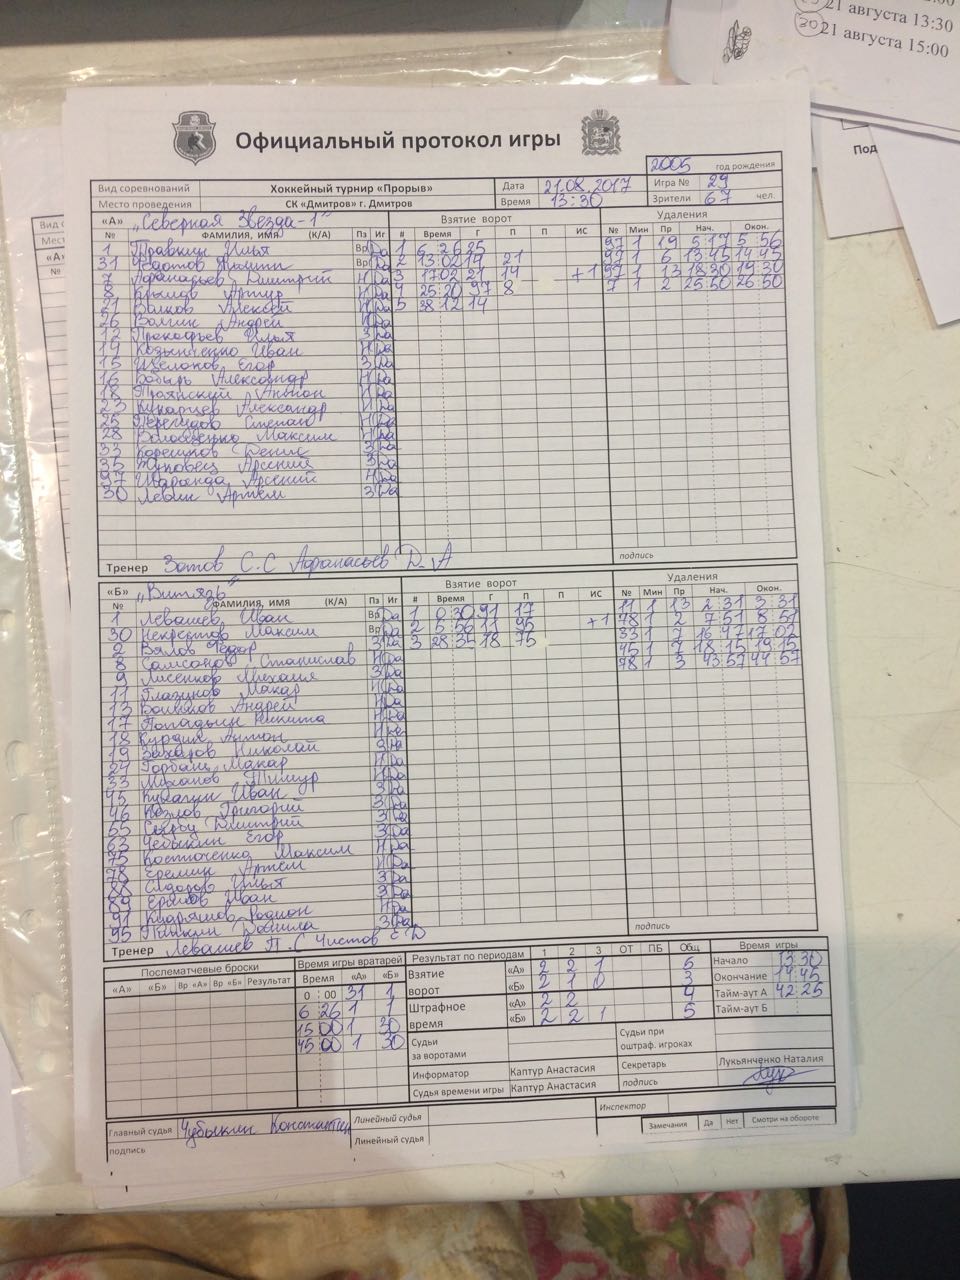 21 августа 13:30
30 21 августа 15:00
Под
Официальный протокол игры
2005 год рождения
Вид соревнований Хоккейный турнир «Прорыв» Дата 21.08.2017 Игра № 29
Место проведения СК «Дмитров» г. Дмитров Время 13:30 Зрители 67 чел.
«А» „Северная Звезда-1" Взятие ворот Удаления
№ ФАМИЛИЯ, ИМЯ (К/А) Пз Иг # Время Г П П ИС № Мин Пр Нач. Окон.
1 Правкин Илья Вр Да 1 6 26 25 97 1 19 5 19 5 56
31 Вр Да 2 13 02 19 21 97 1 6 13 45 14 45
7 Афанасьев Дмитрий Н Да 3 17 02 21 14 +1 97 1 13 18 30 19 30
8 Крылов Артур Н Да 4 25 20 97 8 7 1 2 25 50 26 50
21 Быков Алексей Н Да 5 38 12 14
26 Волгин Андрей Н Да
12 Прокофьев Илья З Да
14 Козынченко Иван Н Да
15 Щелоков Егор З Да
16 Бобырь Александр Н Да
18 Антон Н Да
23 Кухарцев Александр Н Да
25 Степан Н Да
28 Максим Н Да
33 Корешков Денис З Да
35 Жуковец Арсений З Да
97 Шаранда Арсений Н Да
30 Левин Артём З Да
Тренер Зотов С.С Афанасьев Д А подпись
«Б» „Витязь" Взятие ворот Удаления
№ ФАМИЛИЯ, ИМЯ (К/А) Пз Иг # Время Г П П ИС № Мин Пр Нач. Окон.
1 Левашев Иван Вр Да 1 0 30 91 17 11 1 13 2 31 3 31
30 Некрестов Максим Вр Да 2 5 56 11 95 +1 78 1 2 7 51 8 51
2 Вялов Фёдор З Да 3 28 35 18 75 33 1 7 16 47 17 02
8 Самсонов Станислав Н Да 45 1 7 18 15 19 15
9 Лисенков Михаил З Да 78 1 3 43 57 44 57
11 Глазунов Макар Н Да
13 Андрей Н Да
17 Погадьин Никита Н Да
18 Курдин Антон Н
19 Захаров Николай З
24 Горбань Макар Н Да
33 Тимур Н Да
45 Кулагин Иван З Да
46 Козлов Григорий З Да
55 Дмитрий З Да
63 Чебыкин Егор Н Да
75 Костюченко Максим Н Да
78 Еремин Артём Н Да
88 Сидоров Илья З Да
89 Ермлов Иван З Да
91 Кудряшов Родион Н Да
95 Данила З Да
Тренер Левашев П.С Чистов Е Д подпись
Послематчевые броски Время игры вратарей Результат по периодам 1 2 3 ОТ ПБ Общ Время игры
«А» «Б» Вр «А» Вр «Б» Результат Время «А» «Б»
Взятие ворот «А» 2 2 1 5 Начало 13 30
«Б» 2 1 0 3 Окончание 14 45
Штрафное время «А» 2 2 4 Тайм-аут А 42 25
«Б» 2 2 1 5 Тайм-аут Б
0 00 31 1
6 26 1 1
15 00 1 30
45 00 1 30
Судьи за воротами Судьи при оштраф. игроках
Информатор Каптур Анастасия Секретарь Лукьянченко Наталия
Судья времени игры Каптур Анастасия подпись
Главный судья Чубыкин Константин Линейный судья Инспектор
подпись Линейный судья Замечания Да Нет Смотри на обороте